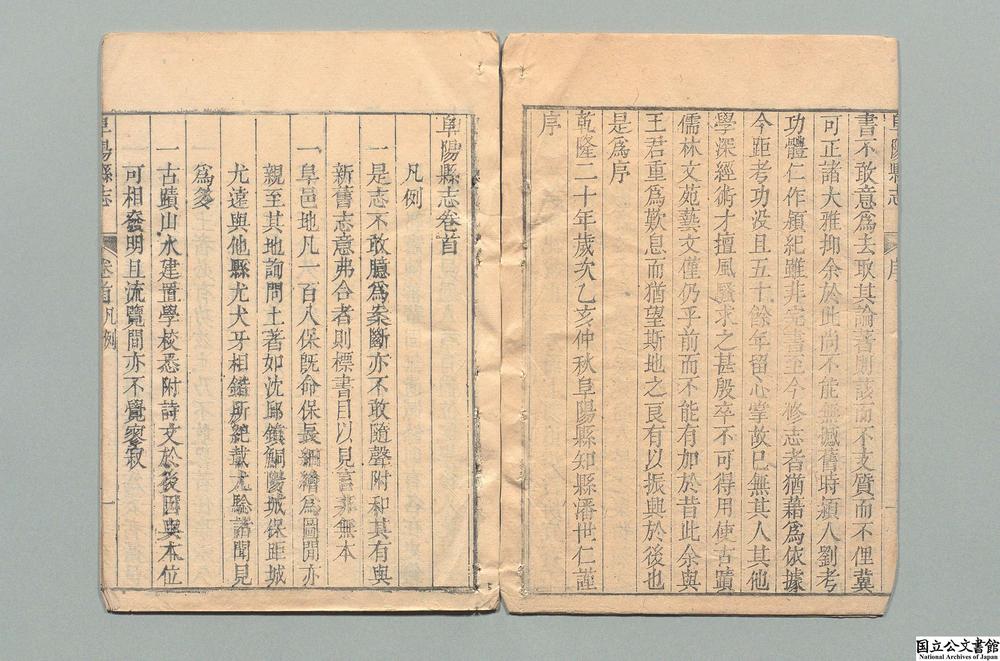 阜陽縣志
序
書不敢意爲去取其論著則該而不支質而不俚冀
可正諸大雅抑余於此尚不能無憾舊時潁人劉考
功體仁作潁紀雖非完書至今修志者猶藉爲依據
今距考功没且五十餘年留心掌故已無其人其他
學深經術才擅風騷求之甚殷卒不可得用使古蹟
儒林文苑藝文僅仍乎前而不能有加於昔此余與
王君重爲歎息而猶望斯地之良有以振興於後也
是爲序
乾隆二十年歲次乙亥仲秋阜陽縣知縣潘世仁謹
序
阜陽縣志卷首
凡例
一是志不敢臆爲案斷亦不敢隨聲附和其有與
新舊志意弗合者則標書目以見言非無本
一阜邑地凡一百八保既命保長細繪爲圖閒亦
親至其地詢問土著如沈邱鎮鮦陽城保距城
尤遠與他縣尤犬牙相錯所紀載尤驗諸聞見
爲多
一古蹟山水建置學校悉附詩文於後因與本位
可相發明且流覽間亦不覺寥寂
阜陽縣志
卷首凡例
一
国立公文書館
National Archives of Japan